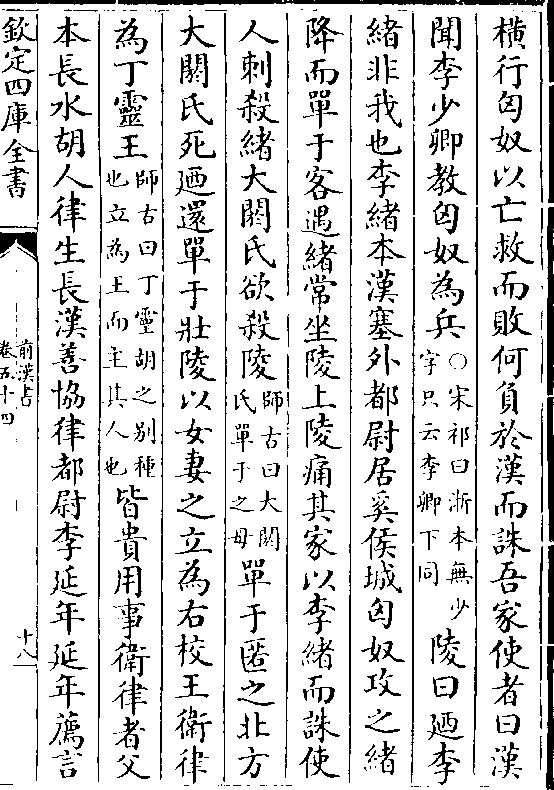 橫行匈奴以亡救而敗何負於漢而誅吾家使者曰漢
聞李少卿教匈奴為兵○宋祁曰浙本無少字只云李卿下同陵曰廼李
緒非我也李緒本漢塞外都尉居奚侯城匈奴攻之緒
降而單于客遇緒常坐陵上陵痛其家以李緒而誅使
人刺殺緒大閼氏欲殺陵師古曰大閼氏單于之母單于匿之北方
大閼氏死廼還單于壯陵以女妻之立為右校王衛律
為丁靈王師古曰丁靈胡之别種也立為王而主其人也皆貴用事衛律者父
本長水胡人律生長漢善協律都尉李延年延年薦言
欽定四庫全書
前漢書
卷五十四
十八